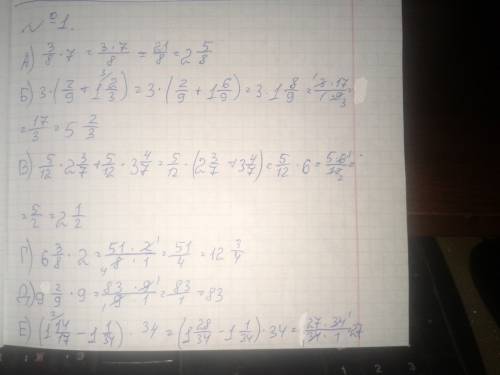 №1.
А) 3/8 · 7 = 3·7/8 = 21/8 = 2 5/8
Б) 3·(2/9 + 1 2/3) = 3·(2/9 + 1 6/9) = 3·1 8/9 = 3·17/1·9 =
= 17/3 = 5 2/3
В) 5/12 · 2 3/7 + 5/12 · 3 4/7 = 5/12 · (2 3/7 + 3 4/7) = 5/12 · 6 = 5·6/12 =
= 5/2 = 2 1/2
Г) 6 3/8 · 2 = 51·2/8·1 = 51/4 = 12 3/4
Д) 9 2/9 · 9 = 83·9/9·1 = 83/1 = 83
Е) (1 14/17 − 1 1/34) · 34 = (1 28/34 − 1 1/34) · 34 = 27·34/34·1 = 27